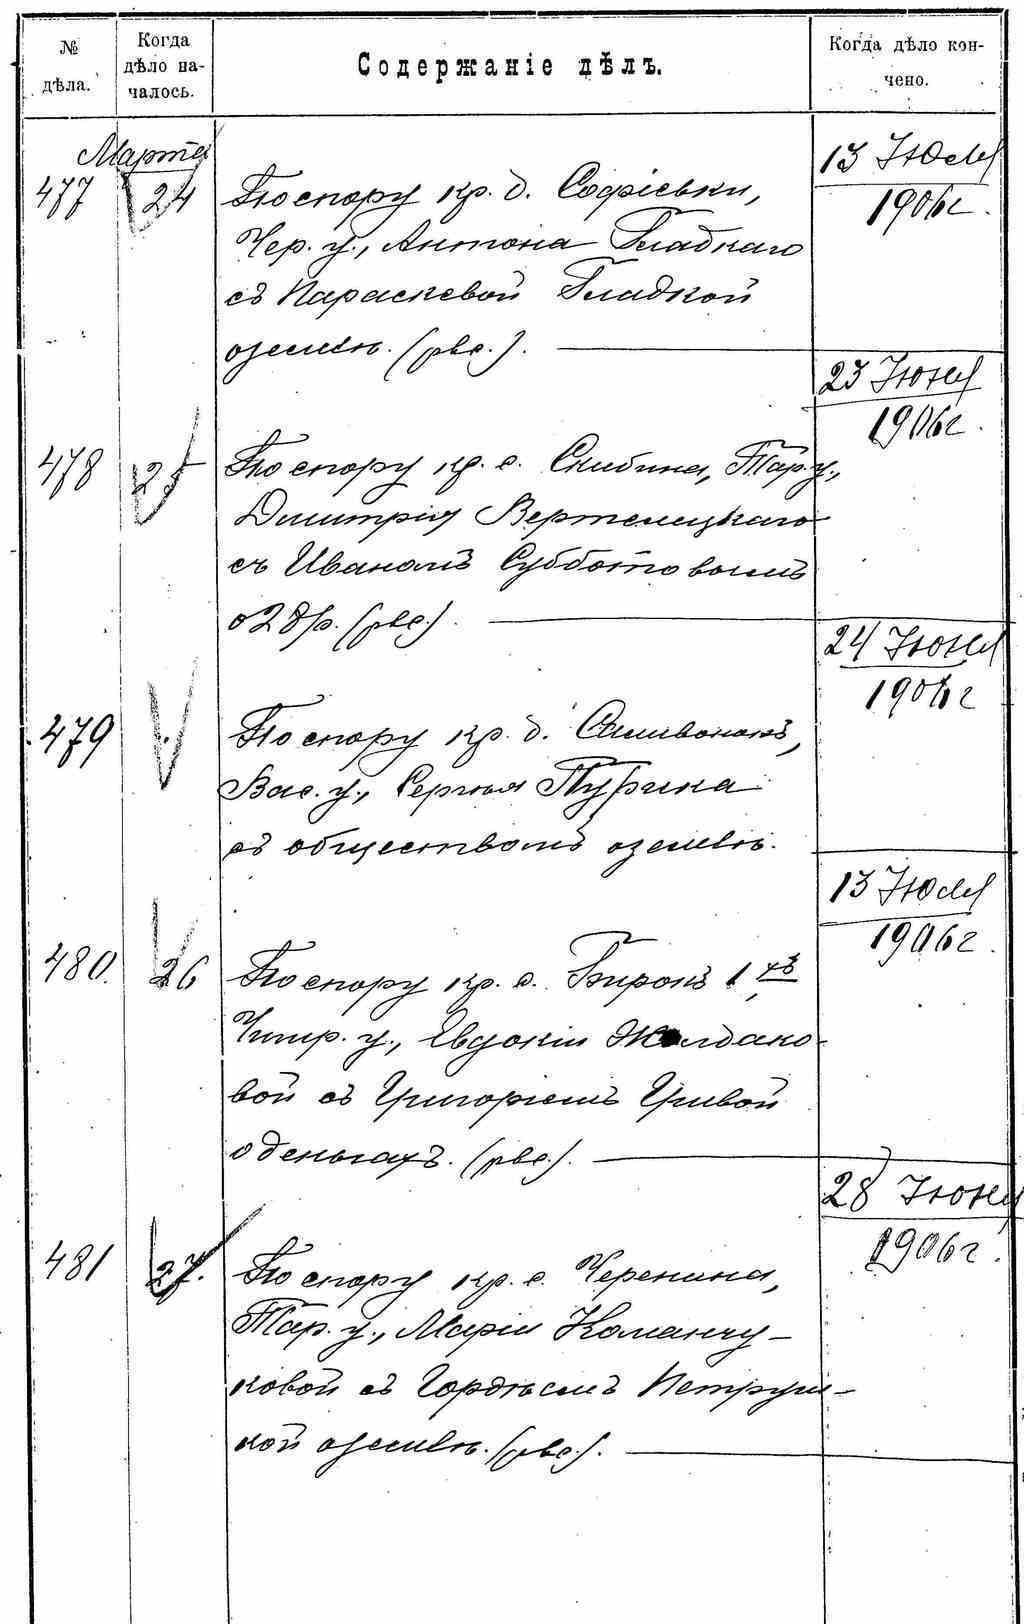 № дѣла.
Когда дѣло на-
чалось.
Содержаніе дѣлъ.
Когда дѣло кон-
чено.
Марта
477 24 По спору кр. д. Софіевки, 13 Юля
Чер. у., Антона Гладкаго 1906 г.
съ Параскевой Гладкой
о землѣ. (рвс.).
23 Юня
1906 г.
478 25 По спору кр. с. Скибина, Тар. у.,
Дмитрія Вертелецкаго
съ Иваномъ Субботовымъ
о 28 р. (рвс.).
24 Юня
1906 г
479 По спору кр. д.
Вас. у., Сергѣя Пурика
съ обществомъ о землѣ.
13 Юля
1906 г.
480. 26 По спору кр. с. 1 ч.
Чигир. у., Евдокіи Жолдако-
вой съ Григоріемъ Гривой
о деньгахъ. (рвс.).
28 Юня
1906 г.
481 27. По спору кр. с. Черепина,
Тар. у., Маріи Команчу-
ковой съ Гордѣемъ Петруш-
кой о землѣ. (рвс.).